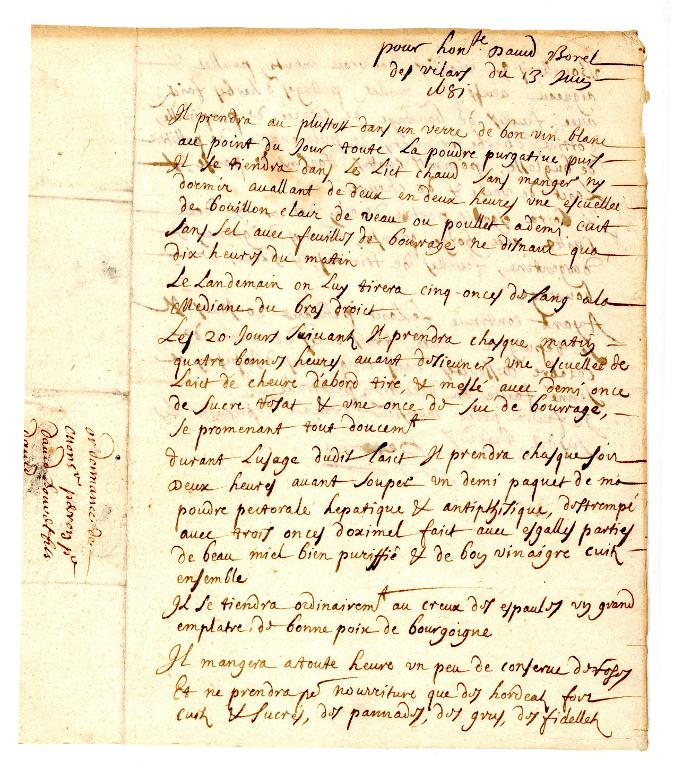 pour hon.te David Borel
des vilars du 13. Juin
1681
Il prendra au plustost dans un verre de bon vin blanc
au point du Jour toute La poudre purgative puis
Il se tiendra dans Le Lict chaud sans manger ny
dormir avallant de deux en deux heures une escuellee
de bouillon clair de veau ou poullet a demi cuit
sans sel avec feuilles de bourrage ne disnant qua
dix heures du matin
Le Landemain on Luy tirera cinq onces de sang a la
Mediane du bras droict
Les 20. Jours suivants Il prendra chasque matin
quatre bonnes heures avant desieuner une escuellee de
Laict de chevre dabord tiré, & meslé avec demi once
de sucre rosat & une once de suc de bourrage,
se promenant tout doucemt
durant Lusage dudit Laict Il prendra chasque soir
deux heures avant souper un demi paquet de ma
poudre pectorale hepatique & antiphisique, destrempé
avec trois onces doximel faict avec esgalles parties
de beau miel bien puriffié & de bon vinaigre cuits
ensemble
Il se tiendra ordinairemt au creux des espaules un grand
emplatre de bonne poix de bourgoigne
Il mangera a toute heure un peu de conserve de roses
Et ne prendra pr nourriture que des hordeat fort
cuits & sucrés, des pannades, des grus, des fidellets
ordonnance de
Monsr pr
David Bourel fils
David